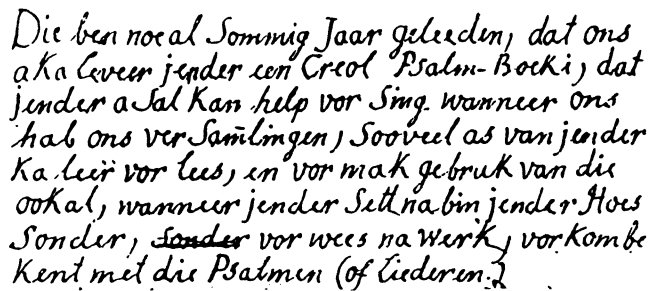 Die ben noeal Sommig Jaar geleeden, dat ons
a Ka leveer jender een Creol Psalm-Boeki, dat
jender a Sal Kan help vor Sing. wanneer ons
hab ons ver Sam̄lingen, Sooveel as van jender
Ka leer vor lees, en vor mak gebruk van die
ookal, wanneer jender Sett na bin jender Hoes
Sonder, sonder vor wees na Werk, vor Kom be
Kent met die Psalmen (of Liederen.)